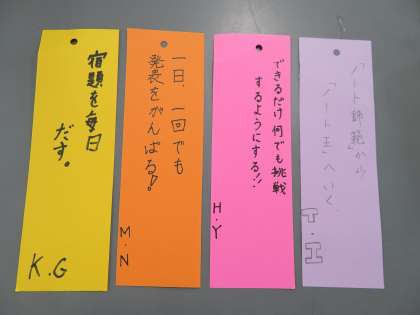 宿題を毎日
だす。
K.G
一日、一回でも
発表をがんばる!
M.N
できるだけ何でも挑戦
するようにする!!
H.Y
「ノート師範」から
「ノート王」へいく。
T.I